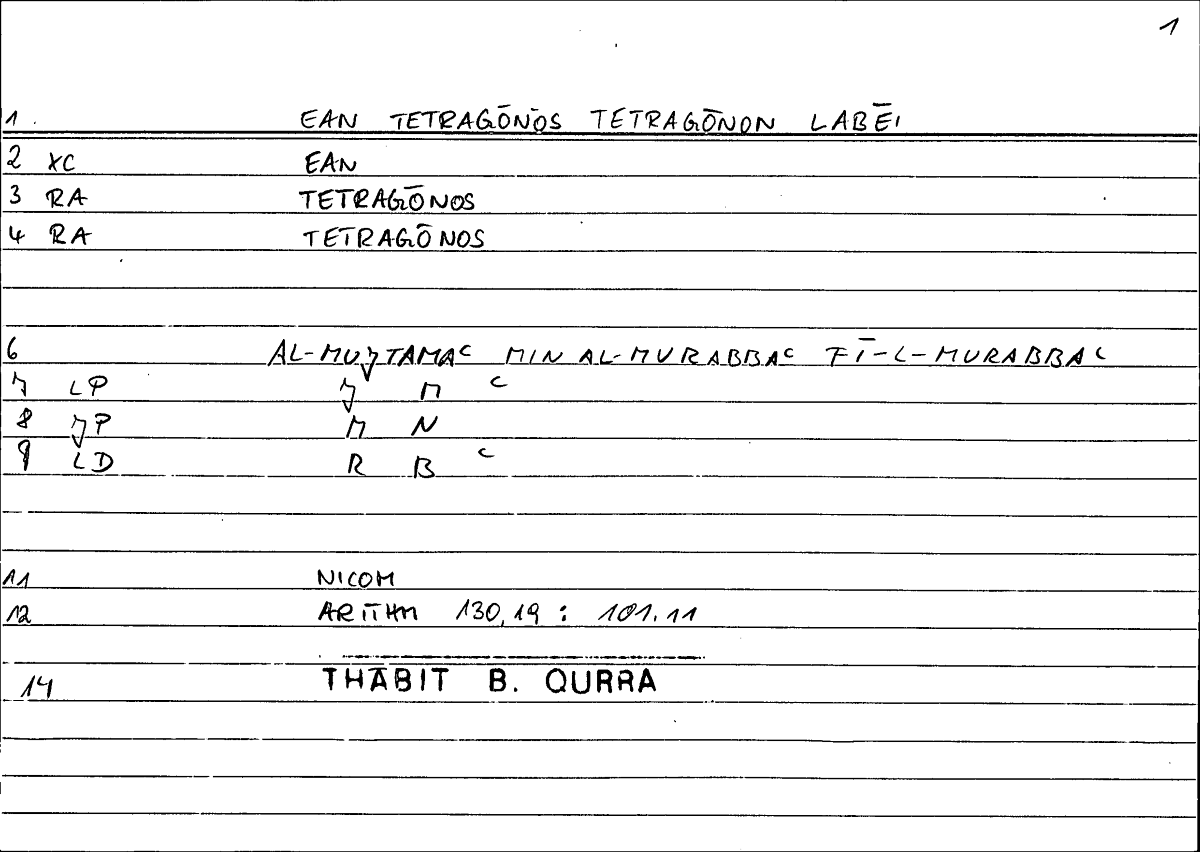 1
1 EAN TETRAGŌNŌS TETRAGŌNON LABĒI
2 XC EAN
3 RA TETRAGŌNOS
4 RA TETRAGŌNOS
6 AL-MUǦTAMAʿ MIN AL-MURABBAʿ FĪ-L-MURABBAʿ
7 LP Ǧ M ʿ
8 ǦP M N
9 LD R B ʿ
11 NICOM
12 ARITHM 130,19 : 101.11
14 THĀBIT B. QURRA